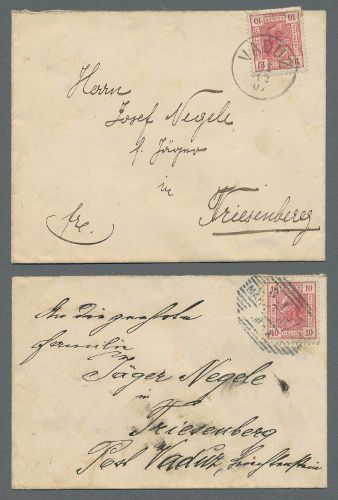 10 10
VADUZ
07
Herrn
Josef Negele
k. Jäger
in
Triesenberg
frc.
10 10
10 10
An die geehrte
Familie
Jäger Negele
in
Triesenberg
Post Vaduz, Liechtenstein